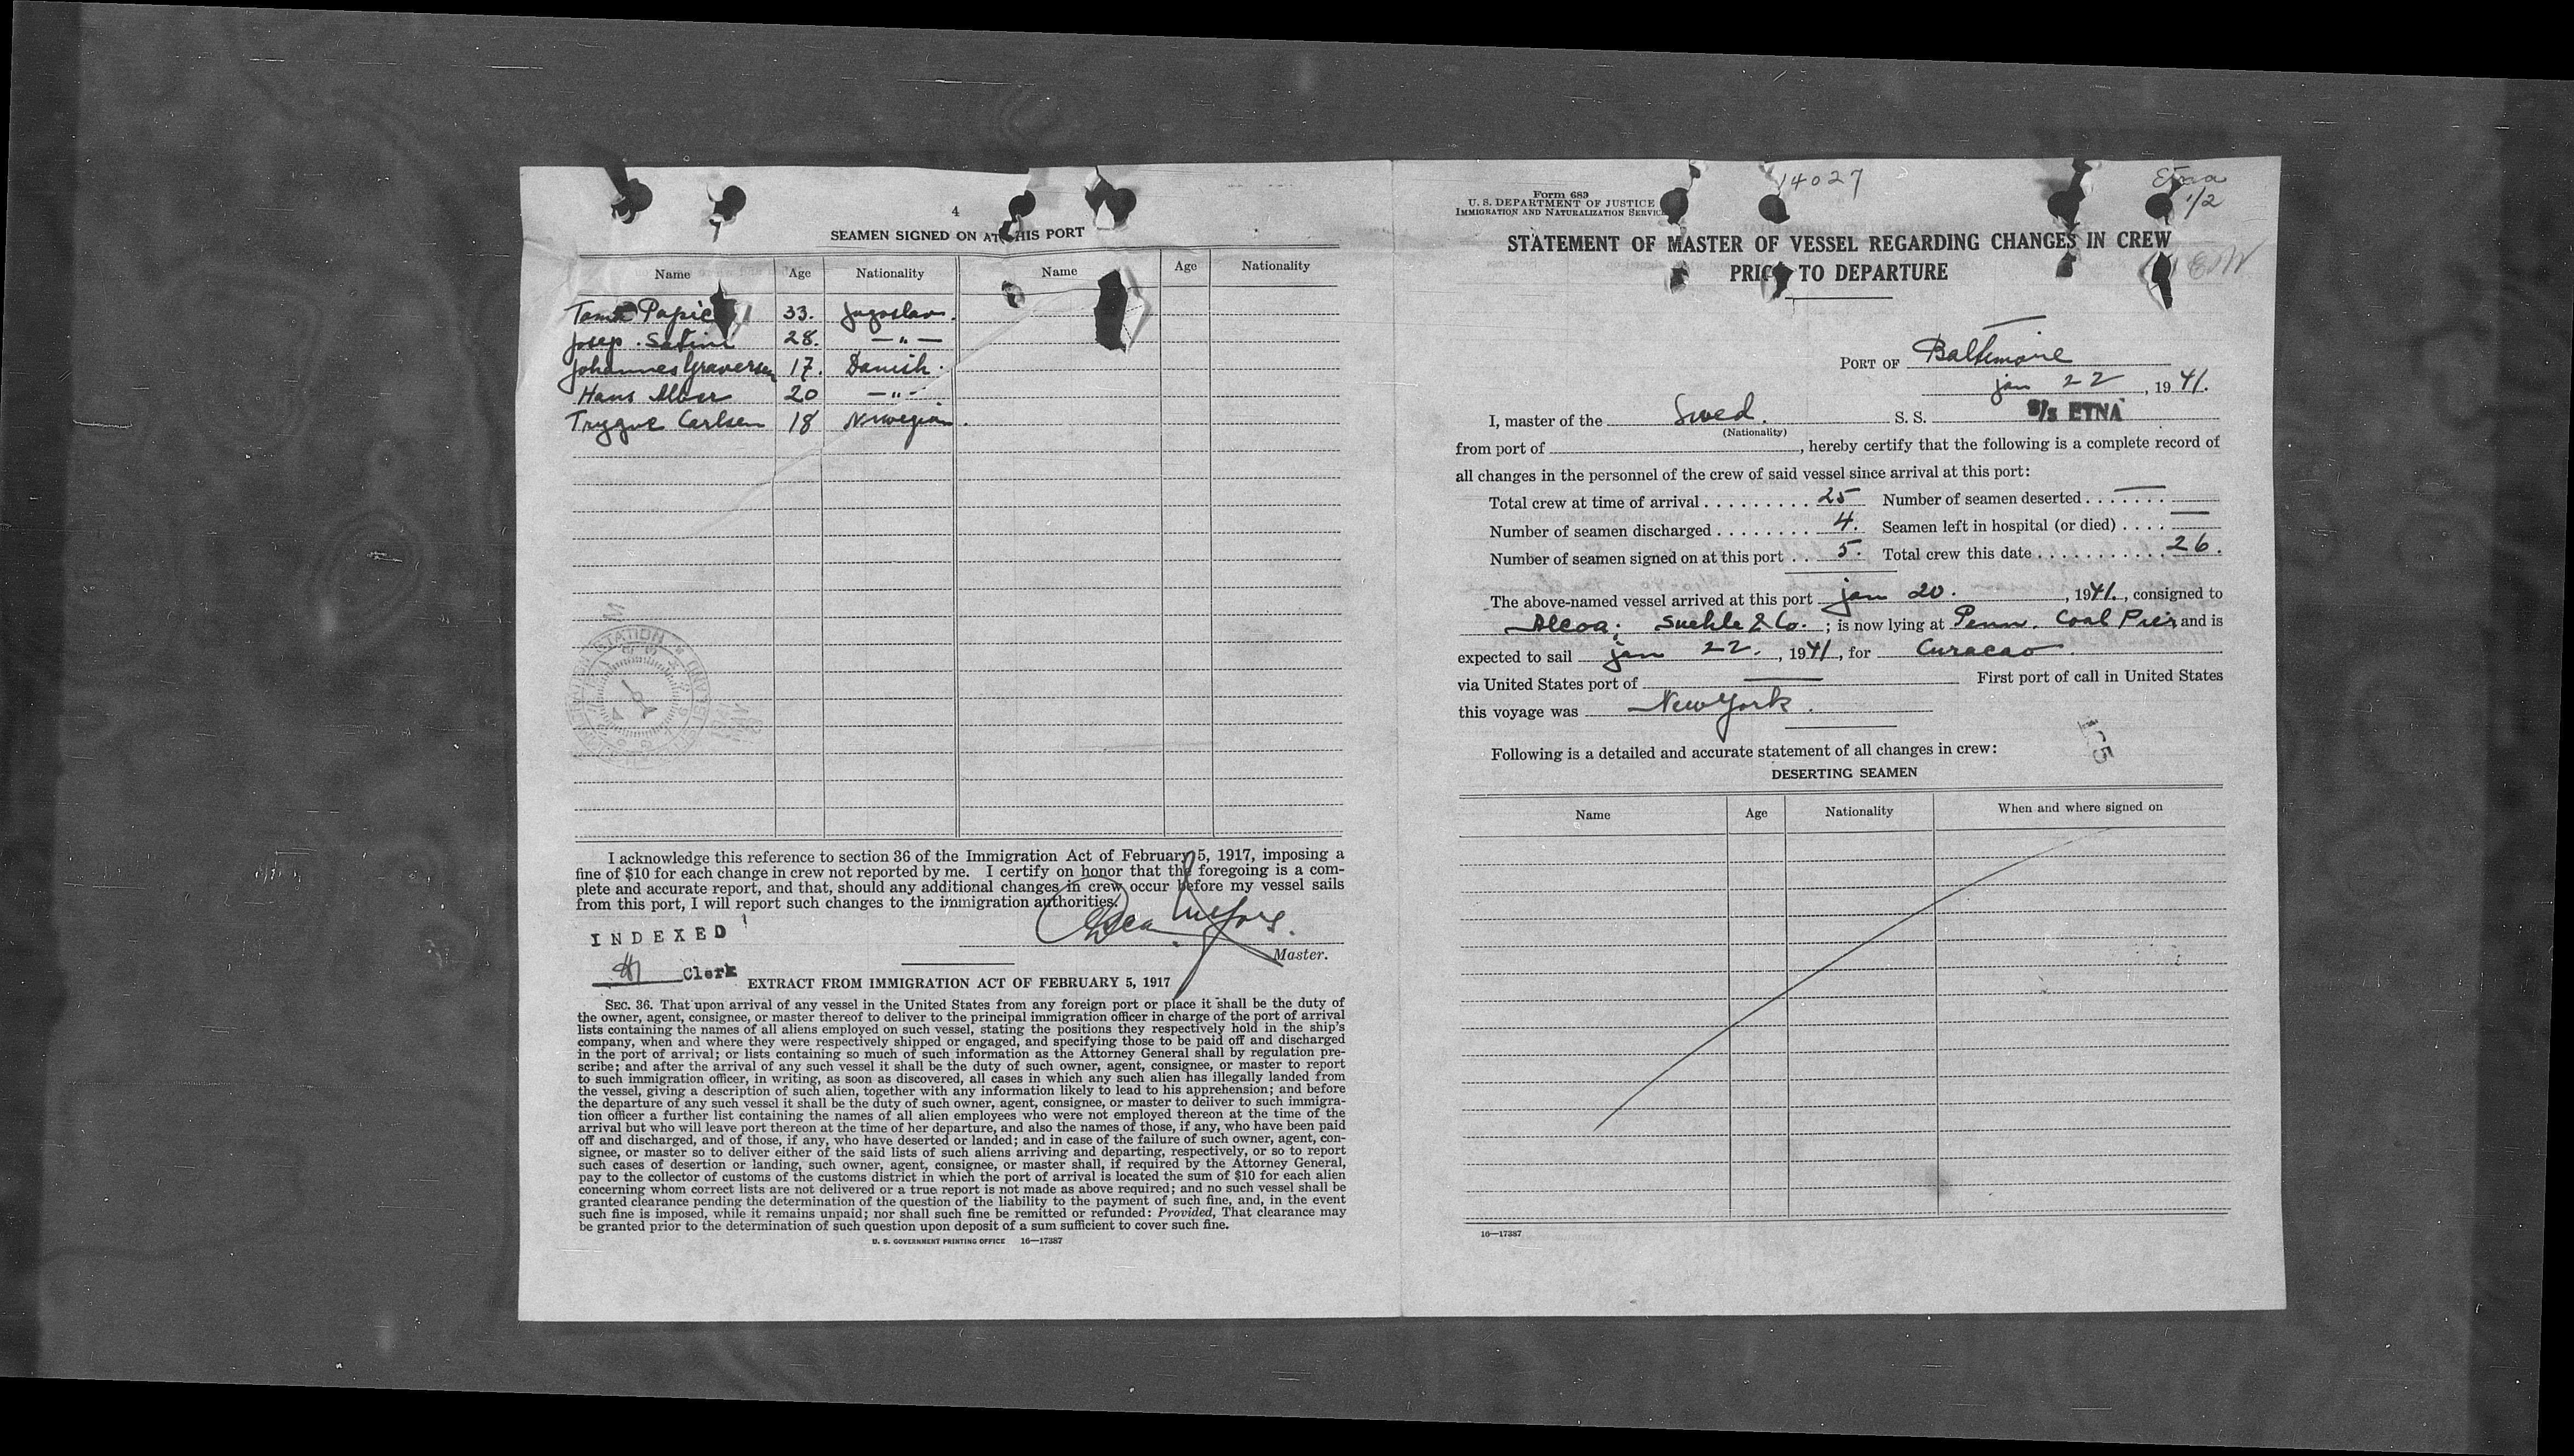 4
SEAMEN SIGNED ON AT THIS PORT
Name Age Nationality Name Age Nationality
Papic 33. Jugoslav.
Josep. 28. —"—
Johannes Graversen 17. Danish.
Hans 20 —"—
Trygve Carlsen 18 Norwegian.
I acknowledge this reference to section 36 of the Immigration Act of February 5, 1917, imposing a
fine of $10 for each change in crew not reported by me. I certify on honor that the foregoing is a com-
plete and accurate report, and that, should any additional changes in crew occur before my vessel sails
from this port, I will report such changes to the immigration authorities.
INDEXED
Master.
Clerk
EXTRACT FROM IMMIGRATION ACT OF FEBRUARY 5, 1917
SEC. 36. That upon arrival of any vessel in the United States from any foreign port or place it shall be the duty of
the owner, agent, consignee, or master thereof to deliver to the principal immigration officer in charge of the port of arrival
lists containing the names of all aliens employed on such vessel, stating the positions they respectively hold in the ship's
company, when and where they were respectively shipped or engaged, and specifying those to be paid off and discharged
in the port of arrival; or lists containing so much of such information as the Attorney General shall by regulation pre-
scribe; and after the arrival of any such vessel it shall be the duty of such owner, agent, consignee, or master to report
to such immigration officer, in writing, as soon as discovered, all cases in which any such alien has illegally landed from
the vessel, giving a description of such alien, together with any information likely to lead to his apprehension; and before
the departure of any such vessel it shall be the duty of such owner, agent, consignee, or master to deliver to such immigra-
tion officer a further list containing the names of all alien employees who were not employed thereon at the time of the
arrival but who will leave port thereon at the time of her departure, and also the names of those, if any, who have been paid
off and discharged, and of those, if any, who have deserted or landed; and in case of the failure of such owner, agent, con-
signee, or master so to deliver either of the said lists of such aliens arriving and departing, respectively, or so to report
such cases of desertion or landing, such owner, agent, consignee, or master shall, if required by the Attorney General,
pay to the collector of customs of the customs district in which the port of arrival is located the sum of $10 for each alien
concerning whom correct lists are not delivered or a true report is not made as above required; and no such vessel shall be
granted clearance pending the determination of the question of the liability to the payment of such fine, and, in the event
such fine is imposed, while it remains unpaid; nor shall such fine be remitted or refunded: Provided, That clearance may
be granted prior to the determination of such question upon deposit of a sum sufficient to cover such fine.
U. S. GOVERNMENT PRINTING OFFICE 16—17387
14027
Etna
1/2
Form 689
U. S. DEPARTMENT OF JUSTICE
IMMIGRATION AND NATURALIZATION SERVICE
STATEMENT OF MASTER OF VESSEL REGARDING CHANGES IN CREW
PRIOR TO DEPARTURE
PORT OF Baltimore
jan 22, 1941.
I, master of the Swed. S. S. S/s ETNA
(Nationality)
from port of , hereby certify that the following is a complete record of
all changes in the personnel of the crew of said vessel since arrival at this port:
Total crew at time of arrival 25 Number of seamen deserted —
Number of seamen discharged 4. Seamen left in hospital (or died) —
Number of seamen signed on at this port 5. Total crew this date 26.
The above-named vessel arrived at this port jan 20. , 1941., consigned to
Alcoa; & Co. ; is now lying at Penn. Coal Pier and is
expected to sail jan 22. , 1941, for Curacao.
via United States port of — First port of call in United States
this voyage was New York.
Following is a detailed and accurate statement of all changes in crew:
DESERTING SEAMEN
Name Age Nationality When and where signed on
16—17387